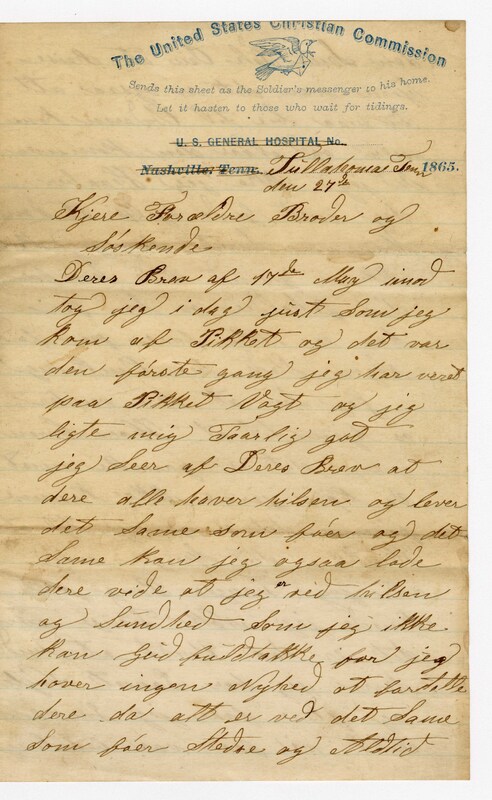 The United States Christian Commission
Sends this sheet as the Soldier's messenger to his home.
Let it hasten to those who wait for tidings.
U. S. GENERAL HOSPITAL No.
Nashville, Tenn. Tullahoma Tenn 1865.
den 27de
Kjere Forældre Broder og
Söskende
Deres Brev af 17de May imod
tog jeg i dag just som jeg
kom af Pikket og det var
den förste gang jeg har veret
paa Pikket Vagt og jeg
ligte mig Taarlig god
jeg Seer af Deres Brev at
dere alle haver hilsen og lever
det Same som föer og det
Same kan jeg ogsaa lade
dere vide at jeg er ved hilsen
og Sundhed som jeg ikke
kan Gud fuldtakke for jeg
haver ingen Nyhed at fortelle
dere da alt er ved det Same
Som föer Stedse og Altid